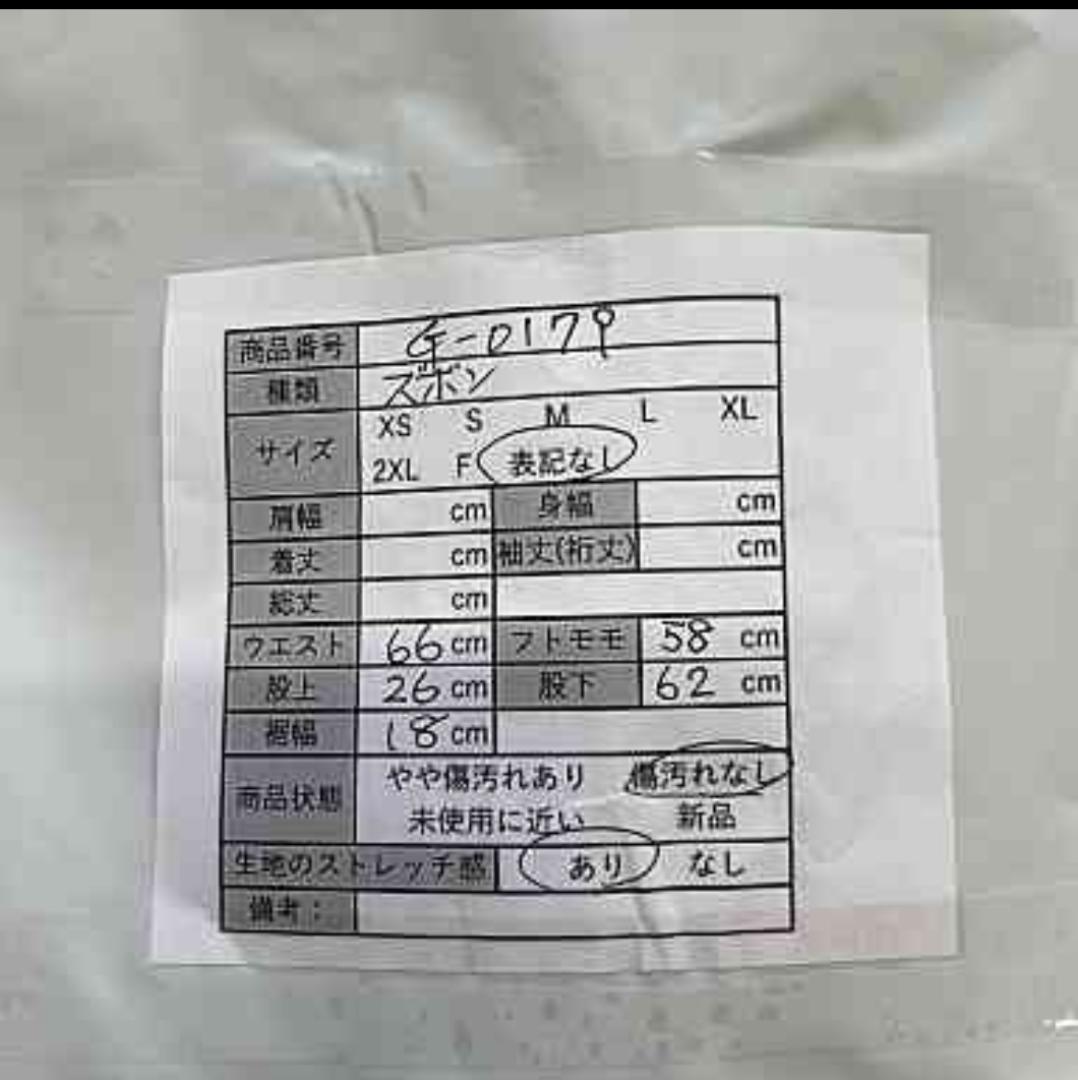 商品番号 G-0179
種類 ズボン
サイズ XS S M L XL
2XL F 表記なし
肩幅 cm 身幅 cm
着丈 cm 袖丈(裄丈) cm
総丈 cm
ウエスト 66 cm フトモモ 58 cm
股上 26 cm 股下 62 cm
裾幅 18 cm
商品状態 やや傷汚れあり 傷汚れなし
未使用に近い 新品
生地のストレッチ感 あり なし
備考：